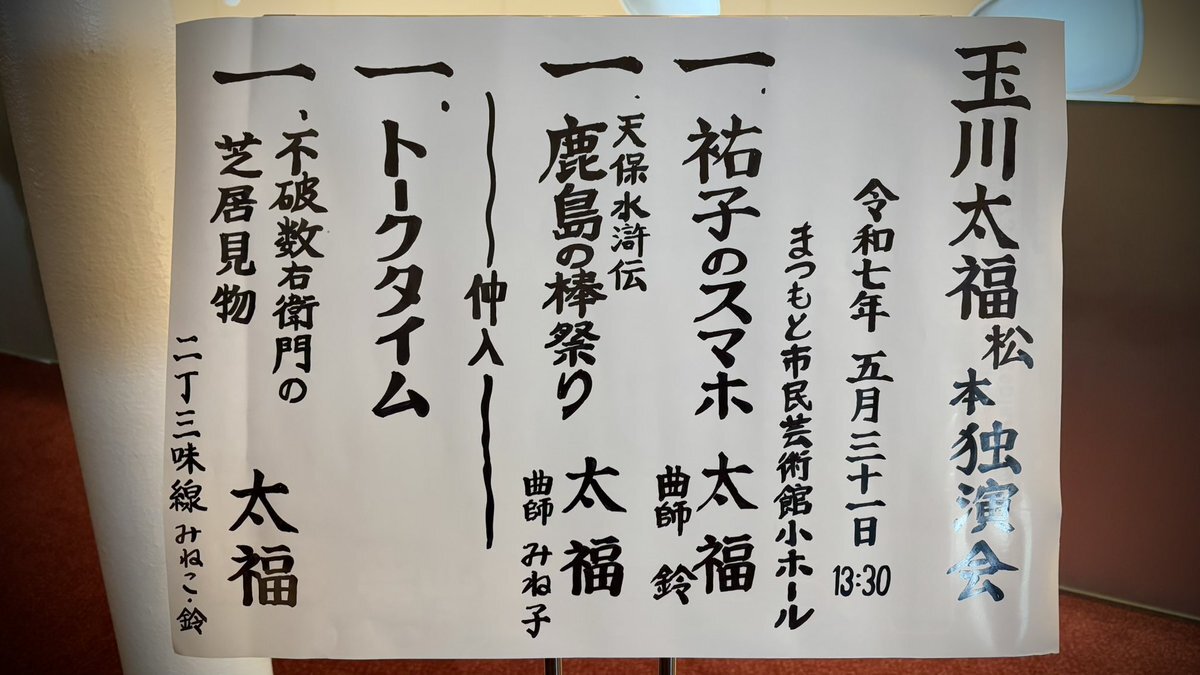 玉川太福松本独演会
令和七年 五月三十一日 13:30
まつもと市民芸術館小ホール
一.祐子のスマホ 太福
曲師 鈴
一.天保水滸伝
鹿島の棒祭り 太福
曲師 みね子
仲入
一.トークタイム
一、不破数右衛門の
芝居見物 太福
二丁三味線みねこ・鈴